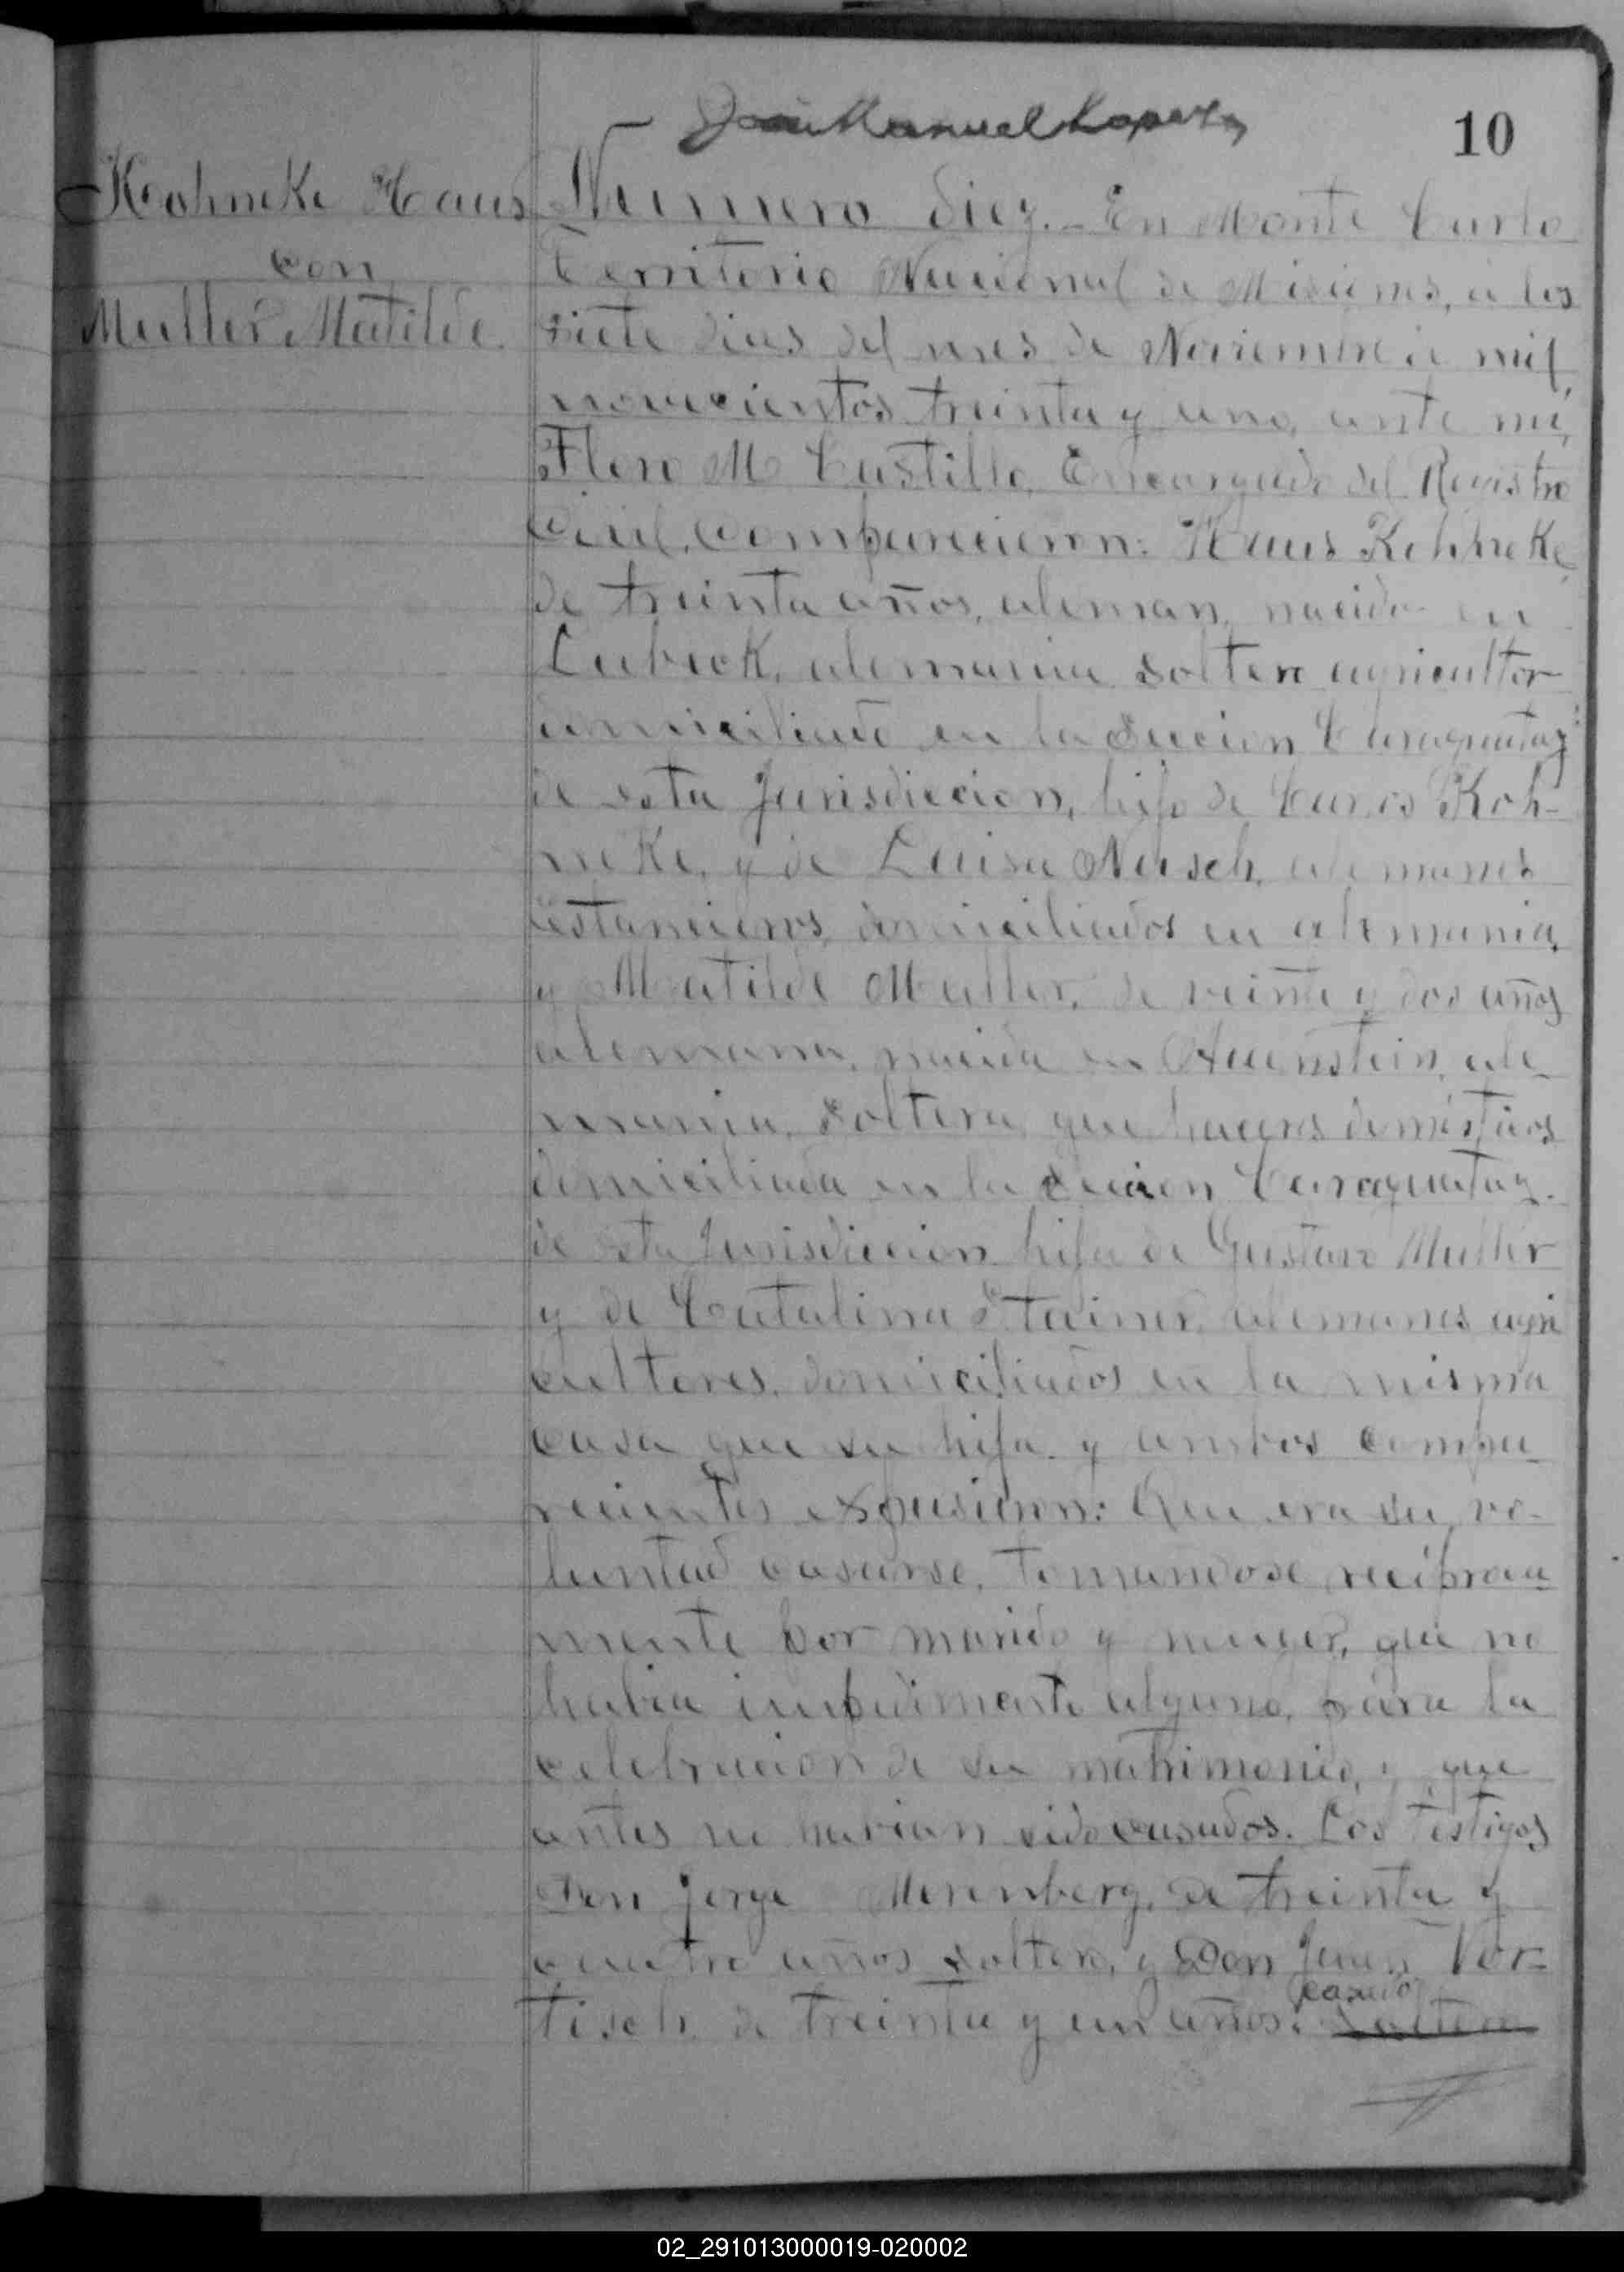 Jose Manuel Lopez
10
Kohneke Haus
con
Muller Matilde.
Numero diez.- En Monte Carlo
Territorio Nacional de Misiones, á los
siete dias del mes de Noviembre de mil
novecientos treinta y uno, ante mi,
Floro M Castillo, Encargado del Registro
Civil, Comparecieron: Haus Kohneke,
de treinta años, aleman, nacido en
Lubeck, alemania soltero agricultor
domiciliado en la Seccion Caraguatay
de esta Jurisdiccion, hijo de Carlos Koh-
neke, y de Luisa Nusch, alemanes
estancieros, domiciliados en alemania,
y Matilde Muller, de veinte y dos años
alemana, nacida en Auenstein, ale-
mania, soltera, que haceres domésticos
domiciliada en la Seccion Caraguatay.
de esta Jurisdiccion hija de Gustavo Muller
y de Catalina Stainer, alemanes agri
cultores, domiciliados en la misma
casa que su hija. y ambos compa-
recientes expusieron: Que era su vo-
luntad casarse, tomandose reciproca
mente por marido y muger, que no
habia impedimento alguno, para la
celebracion de su matrimonio, y que
antes no habian sido casados. Los testigos
Don Jorge Merenberg, de treinta y
cuatro años soltero, y Don Juan Vor-
casado
tisch de treinta y un años. soltero
02_291013000019-020002